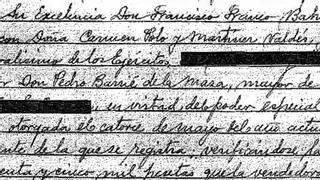 Su Excelencia Don Francisco Franco Baha
con Doña Carmen Polo y Martínez Valdés,
ralísimo de los Ejércitos
r Don Pedro Barrié de la Maza, mayor de
en virtud del poder especial
otorgada el catorce de mayo del año actu
de la que se registra, verificándose la
enta y cinco mil pesetas que la vendedora